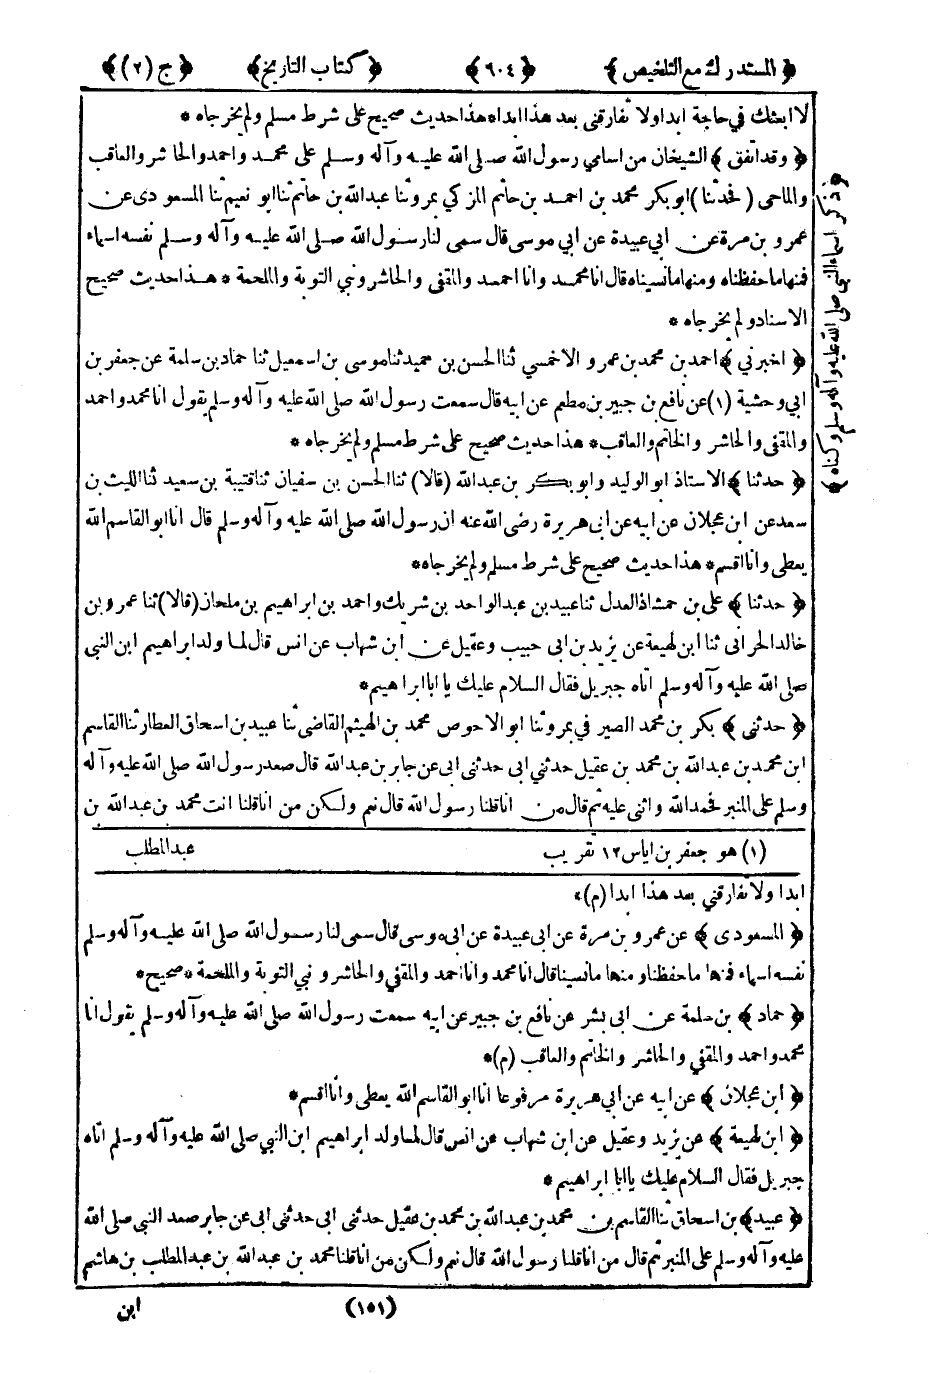 ﴿ المستدرك مع التلخيص ﴾ ﴿ ٦٠٤ ﴾ ﴿ كتاب التاريخ ﴾ ﴿ ج (٢) ﴾
لا ابعثك في حاجة ابدا ولا تفارقنى بعد هذا ابدا* هذا حديث صحيح على شرط مسلم ولم يخرجاه *
﴿ وقد اتفق ﴾ الشيخان من اسامي رسول الله صلى الله عليه وآله وسلم على محمد واحمد والحاشر والعاقب
والماحى ( فحدثنا ) ابو بكر محمد بن احمد بن حاتم المزكي بمرو ثنا عبدالله بن حاتم ثنا ابو نعيم ثنا المسعودى عن
عمرو بن مرة عن ابي عبيدة عن ابي موسى قال سمى لنا رسول الله صلى الله عليه وآله وسلم نفسه اسماء
فمنها ما حفظناه ومنها ما نسيناه قال انا محمد وانا احمد والمقفى والحاشر ونبي التوبة والملحمة * هذا حديث صحيح
الاسناد ولم يخرجاه *
﴿ اخبرني ﴾ احمد بن محمد بن عمرو الاخمسي ثنا الحسن بن حميد ثنا موسى بن اسمعيل ثنا حماد بن سلمة عن جعفر بن
ابي وحشية (١) عن نافع بن جبير بن مطعم عن ابيه قال سمعت رسول الله صلى الله عليه وآله وسلم يقول انا محمد واحمد
والمقفى والحاشر والخاتم والعاقب* هذا حديث صحيح على شرط مسلم ولم يخرجاه *
﴿ حدثنا ﴾ الاستاذ ابو الوليد وابو بكر بن عبدالله (قالا) ثنا الحسن بن سفيان ثنا قتيبة بن سعيد ثنا الليث بن
سعد عن ابن عجلان عن ابيه عن ابى هريرة رضى الله عنه ان رسول الله صلى الله عليه وآله وسلم قال انا ابو القاسم الله
يعطى وانا اقسم* هذا حديث صحيح على شرط مسلم ولم يخرجاه*
﴿ حدثنا ﴾ على بن حمشاذ العدل ثنا عبيد بن عبد الواحد بن شريك واحمد بن ابراهيم بن ملحان (قالا) ثنا عمرو بن
خالد الحرانى ثنا ابن لهيعة عن يزيد بن ابى حبيب وعقيل عن ابن شهاب عن انس قال لما ولد ابراهيم ابن النبي
صلى الله عليه وآله وسلم اتاه جبريل فقال السلام عليك يا ابا ابراهيم*
﴿ حدثنى ﴾ بكر بن محمد الصيرفي بمرو ثنا ابو الاحوص محمد بن الهيثم القاضى ثنا عبيد بن اسحاق العطار ثنا القاسم
ابن محمد بن عبدالله بن محمد بن عقيل حدثني ابى حدثنى ابى عن جابر بن عبدالله قال صعد رسول الله صلى الله عليه وآله
وسلم على المنبر فحمد الله واثنى عليه ثم قال من انا قلنا رسول الله قال نعم ولكن من انا قلنا انت محمد بن عبدالله بن
﴿ ذكر اسماء النبي صلى الله عليه وآله وسلم وكناه ﴾
(١) هو جعفر بن اياس ١٢ تقريب عبدالمطلب
ابدا ولا تفارقني بعد هذا ابدا (م)*
﴿ المسعودى ﴾ عن عمرو بن مرة عن ابى عبيدة عن ابى موسى قال سمى لنا رسول الله صلى الله عليه وآله وسلم
نفسه اسماء فمنها ما حفظنا ومنها ما نسينا قال انا محمد وانا احمد والمقفي والحاشر ونبي التوبة والملحمة *صحيح*
﴿ حماد ﴾ بن سلمة عن ابى بشر عن نافع بن جبير عن ابيه سمعت رسول الله صلى الله عليه وآله وسلم يقول انا
محمد واحمد والمقفي والحاشر والخاتم والعاقب (م)*
﴿ ابن عجلان ﴾ عن ابيه عن ابي هريرة مرفوعا انا ابو القاسم الله يعطى وانا اقسم*
﴿ ابن لهيعة ﴾ عن يزيد وعقيل عن ابن شهاب عن انس قال لما ولد ابراهيم ابن النبي صلى الله عليه وآله وسلم اتاه
جبريل فقال السلام عليك يا ابا ابراهيم *
﴿ عبيد ﴾ بن اسحاق ثنا القاسم بن محمد بن عبدالله بن محمد بن عقيل حدثنى ابى حدثنى ابى عن جابر صعد النبي صلى الله
عليه وآله وسلم على المنبر ثم قال من انا قلنا رسول الله قال نعم ولكن من انا قلنا محمد بن عبدالله بن عبدالمطلب بن هاشم
(١٥١) ابن